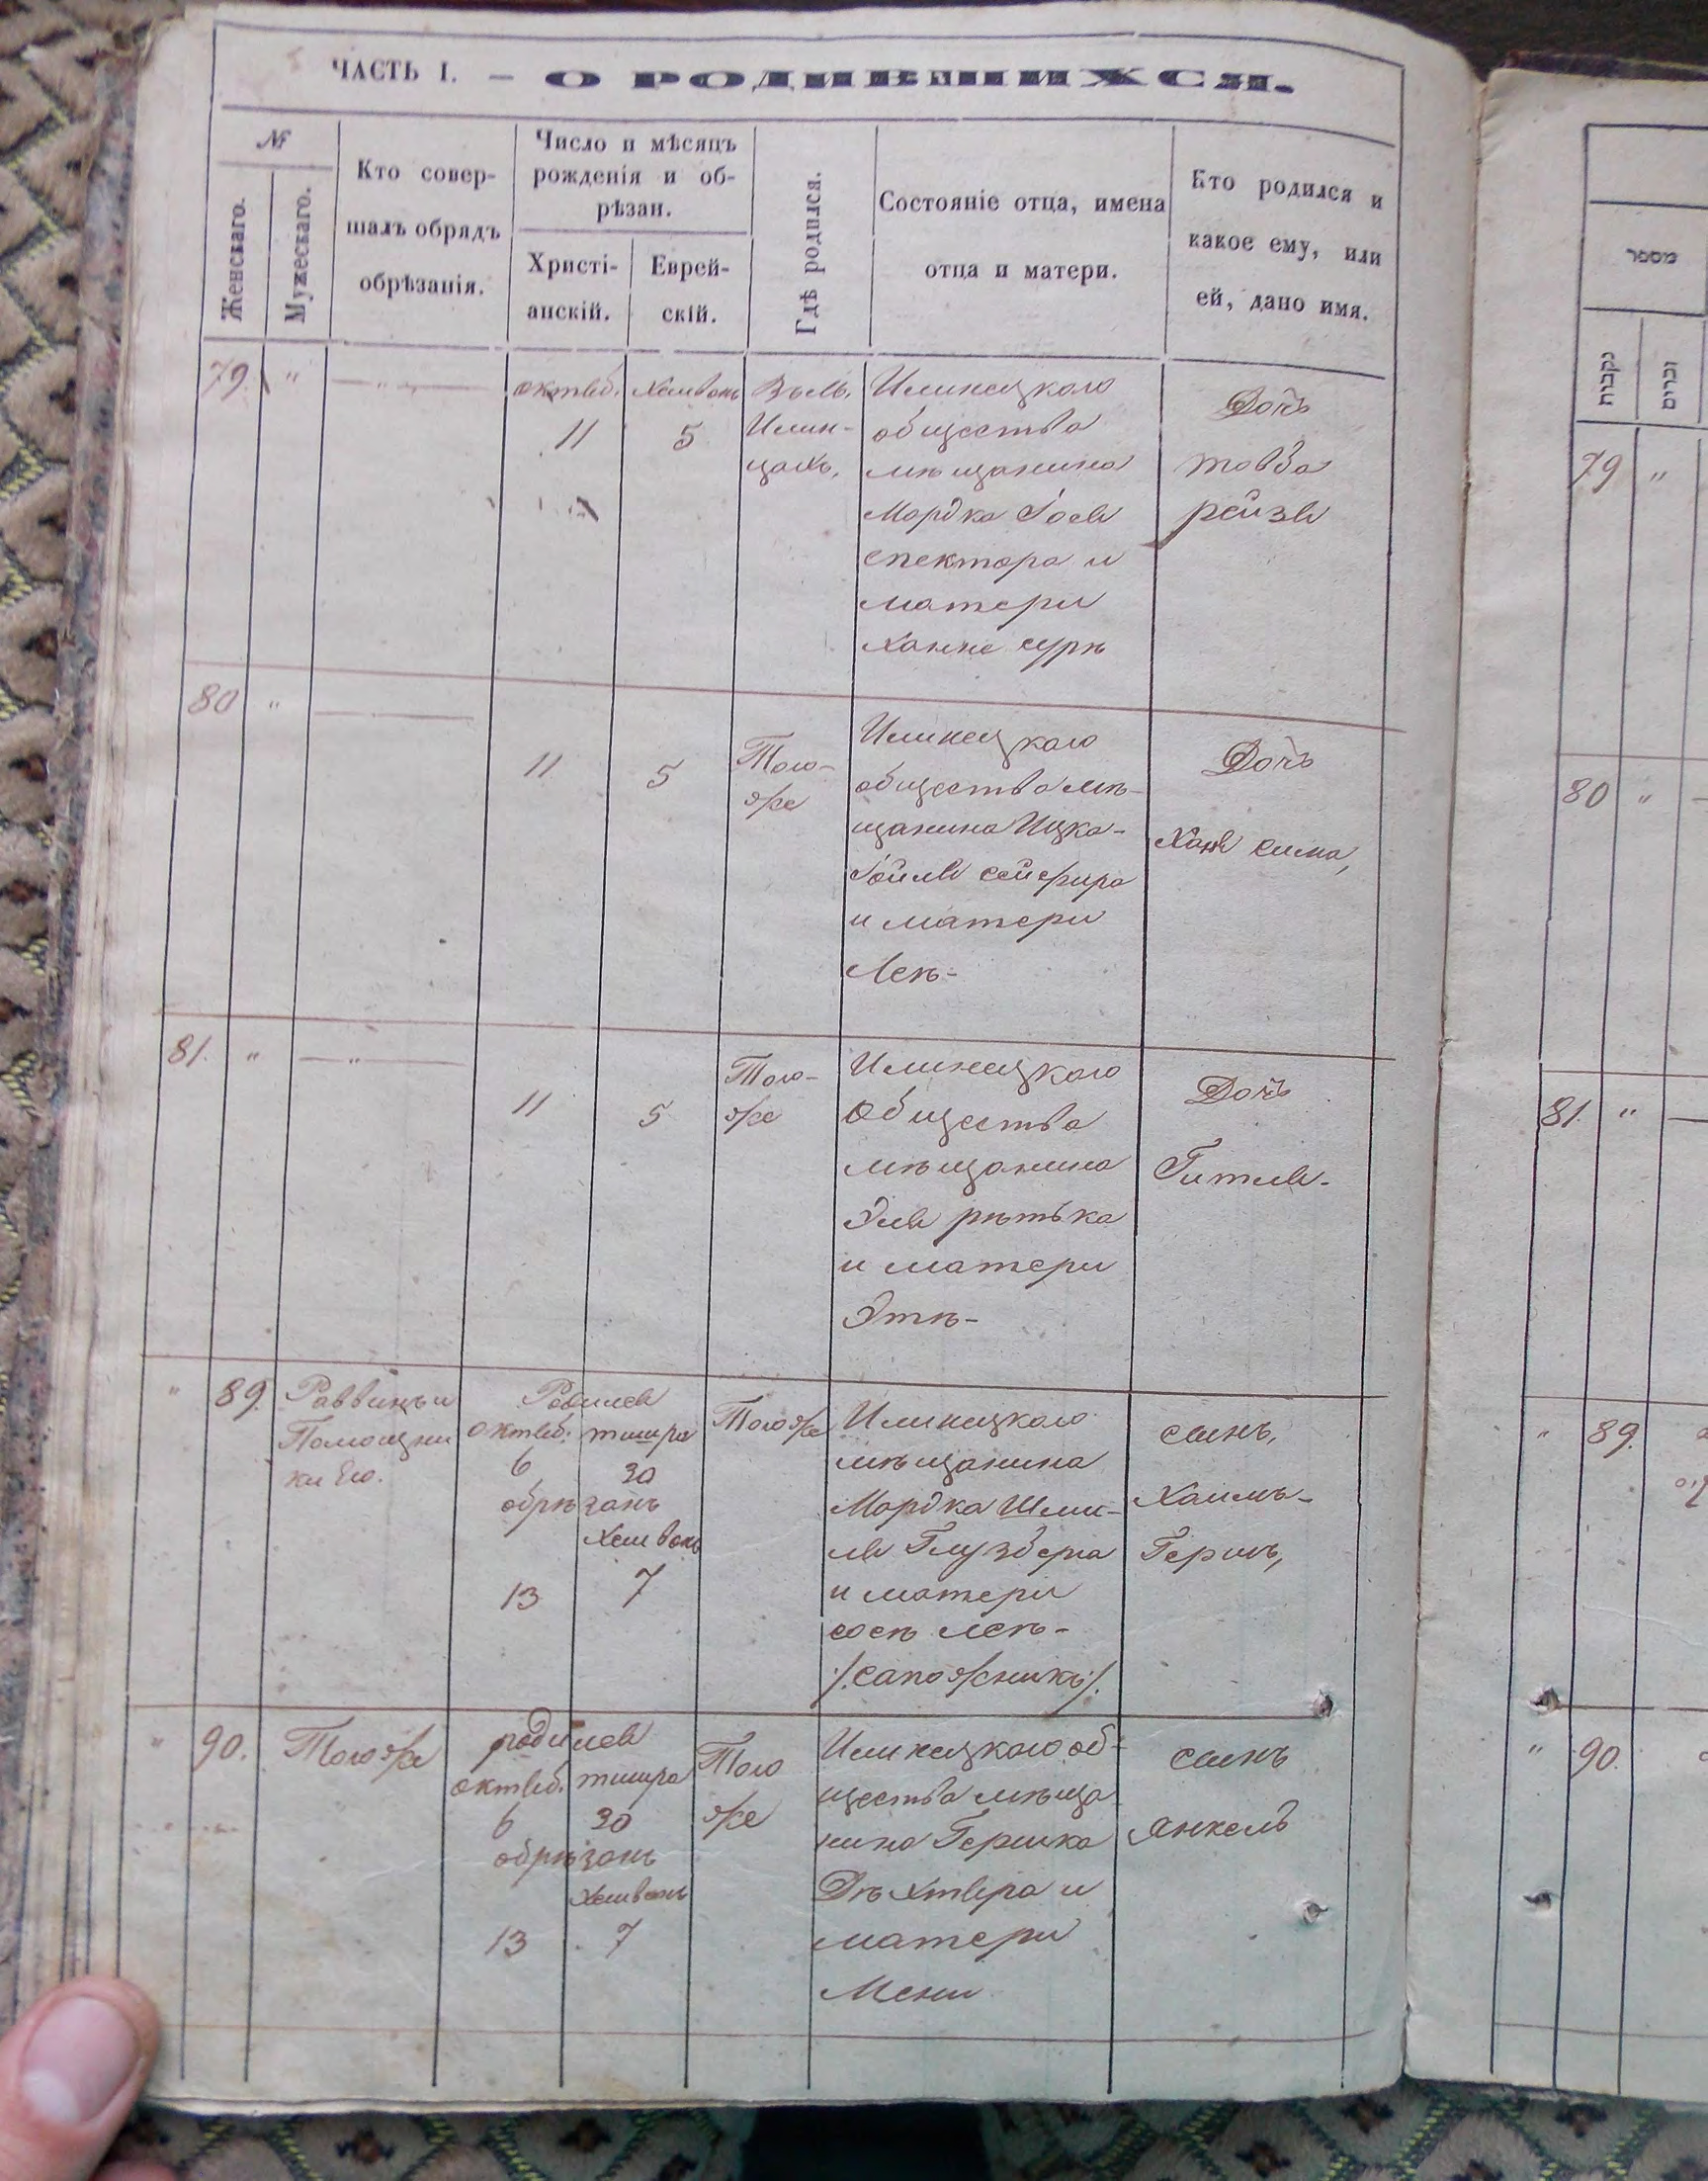 ЧАСТЬ I. — О РОДИВШИХСЯ.
№
Женскаго.
Мужескаго.
Кто совер-
шалъ обрядъ
обрѣзанія.
Число и мѣсяцъ
рожденія и об-
рѣзан.
Христі-
анскій.
Еврей-
скій.
Гдѣ родился.
Состояніе отца, имена
отца и матери.
Кто родился и
какое ему, или
ей, дано имя.
79. " — " —
октяб. Хешвонъ
11 5
Въ м.
Илин-
цахъ.
Илинецкаго
общества
мѣщанина
Мордка Іося
спектора и
матери
Ханне сурѣ
Дочь
товба
рейзя
80 " —
11 5
Того-
же
Илинецкаго
общества мѣ-
щанина Ицка-
Іойля сейфира
и матери
Леѣ-
Дочь
Хая сима,
81. " — " —
11 5
Того-
же
Илинецкаго
Общества
мѣщанина
Эля рѣтька
и матери
Этѣ-
Дочь
Гитля-
" 89.
Раввинъ и
Помощни
ки Его.
Родился
октяб. тишра
6 30
обрѣзанъ
Хешвонъ
13 7
Того же
Илинецкаго
мѣщанина
Мордка Шми-
ля Глузберга
и матери
сосѣ леѣ-
/.сапожникъ/.
сынъ,
Хаимъ-
Гершъ,
" 90.
Того же
родился
октяб. тишра
6 30
обрѣзанъ
Хешвонъ
13 7
Того
же
Илинецкаго об-
щества мѣща
нина Гершка
Дѣхтяра и
матери
Мени
сынъ
янкель
מספר
נקבות
זכרים
79 "
80 "
81. "
" 89.
" 90.